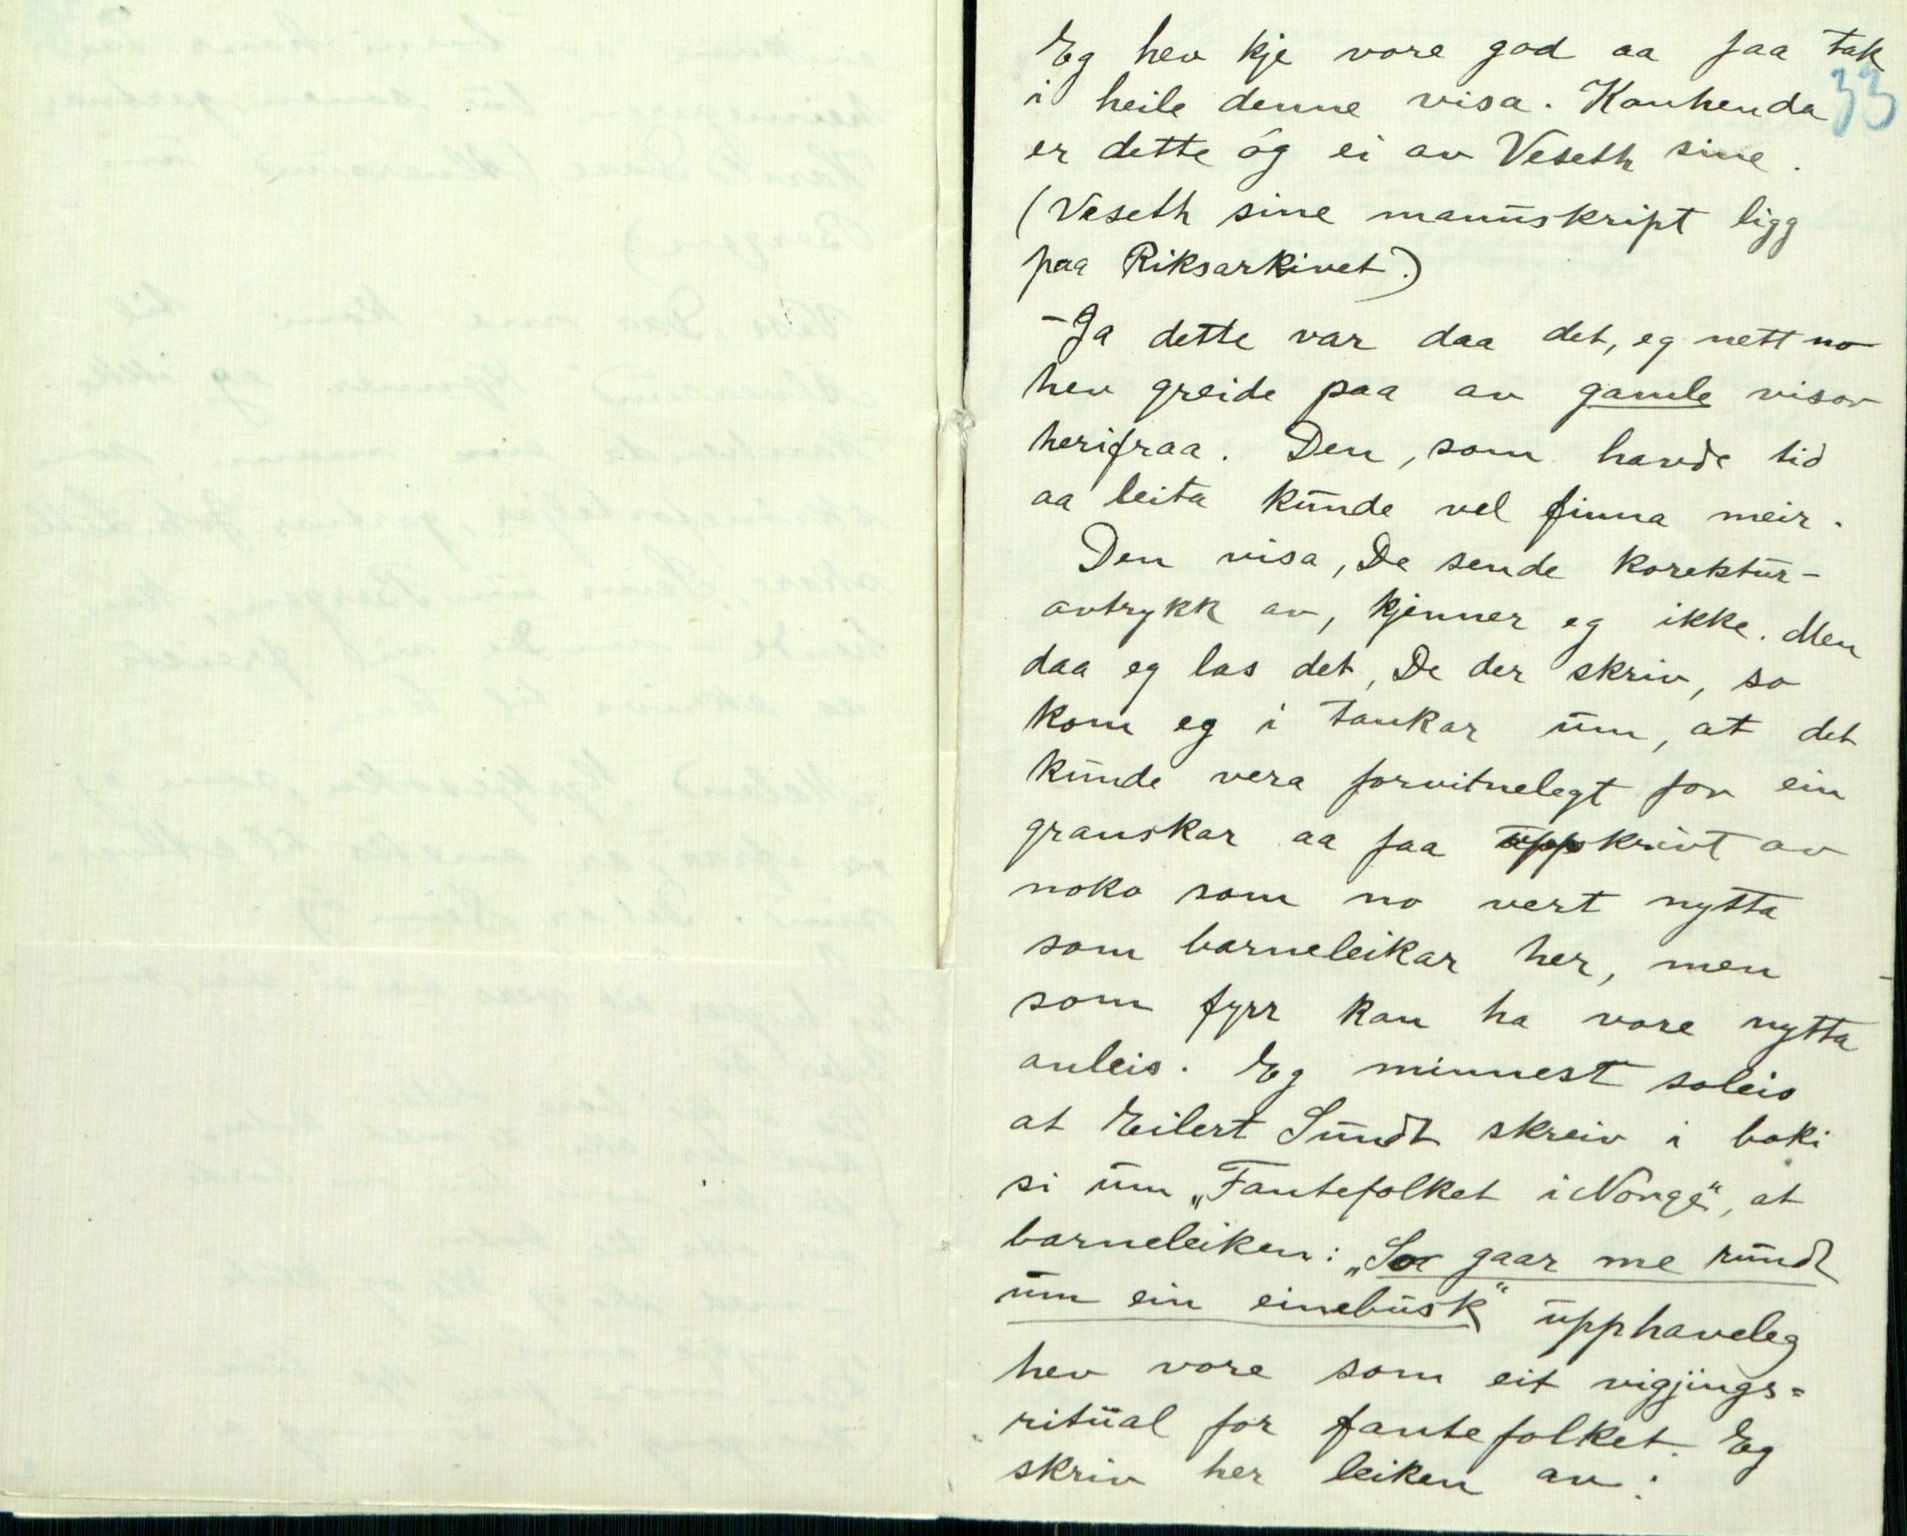 Eg hev kje vore god aa faa tak
33
i heile denne visa. Kanhenda
er dette óg ei av Veseth sine.
(Veseth sine manuskript ligg
paa Riksarkivet.)
- Ja dette var daa det, eg nett no
hev greide paa av gamle visor
herifraa. Den, som havde tid
aa leita kunde vel finna meir.
Den visa, De sende korektur-
avtrykk av, kjenner eg ikke. Men
daa eg las det, De der skriv, so
kom eg i tankar um, at det
kunde vera forvitnelegt for ein
granskar aa faa uppskrivt av
noko som no vert nytta
som barneleikar her, men
som fyrr kan ha vore nytta
anleis. Eg minnest soleis
at Eilert Sundt skreiv i boki
si um „Fantefolket i Norge“, at
barneleiken: „So gaar me rundt
um ein einebusk“ upphaveleg
hev vore som eit vigjings=
ritual for fantefolket. Eg
skriv her leiken av: